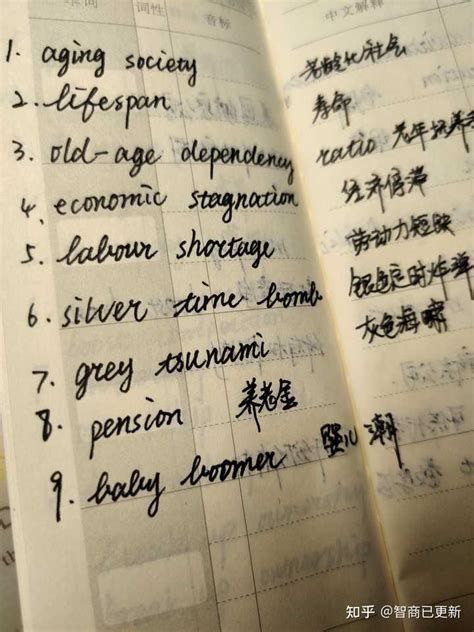 单词 词性 音标 中文解释
1. aging society 老龄化社会
2. lifespan 寿命
3. old-age dependency ratio 老年抚养
4. economic stagnation 经济停滞
5. labour shortage 劳动力短缺
6. silver time bomb 银色定时炸弹
7. grey tsunami 灰色海啸
8. pension 养老金
9. baby boomer 婴儿潮
知乎 @智商已更新